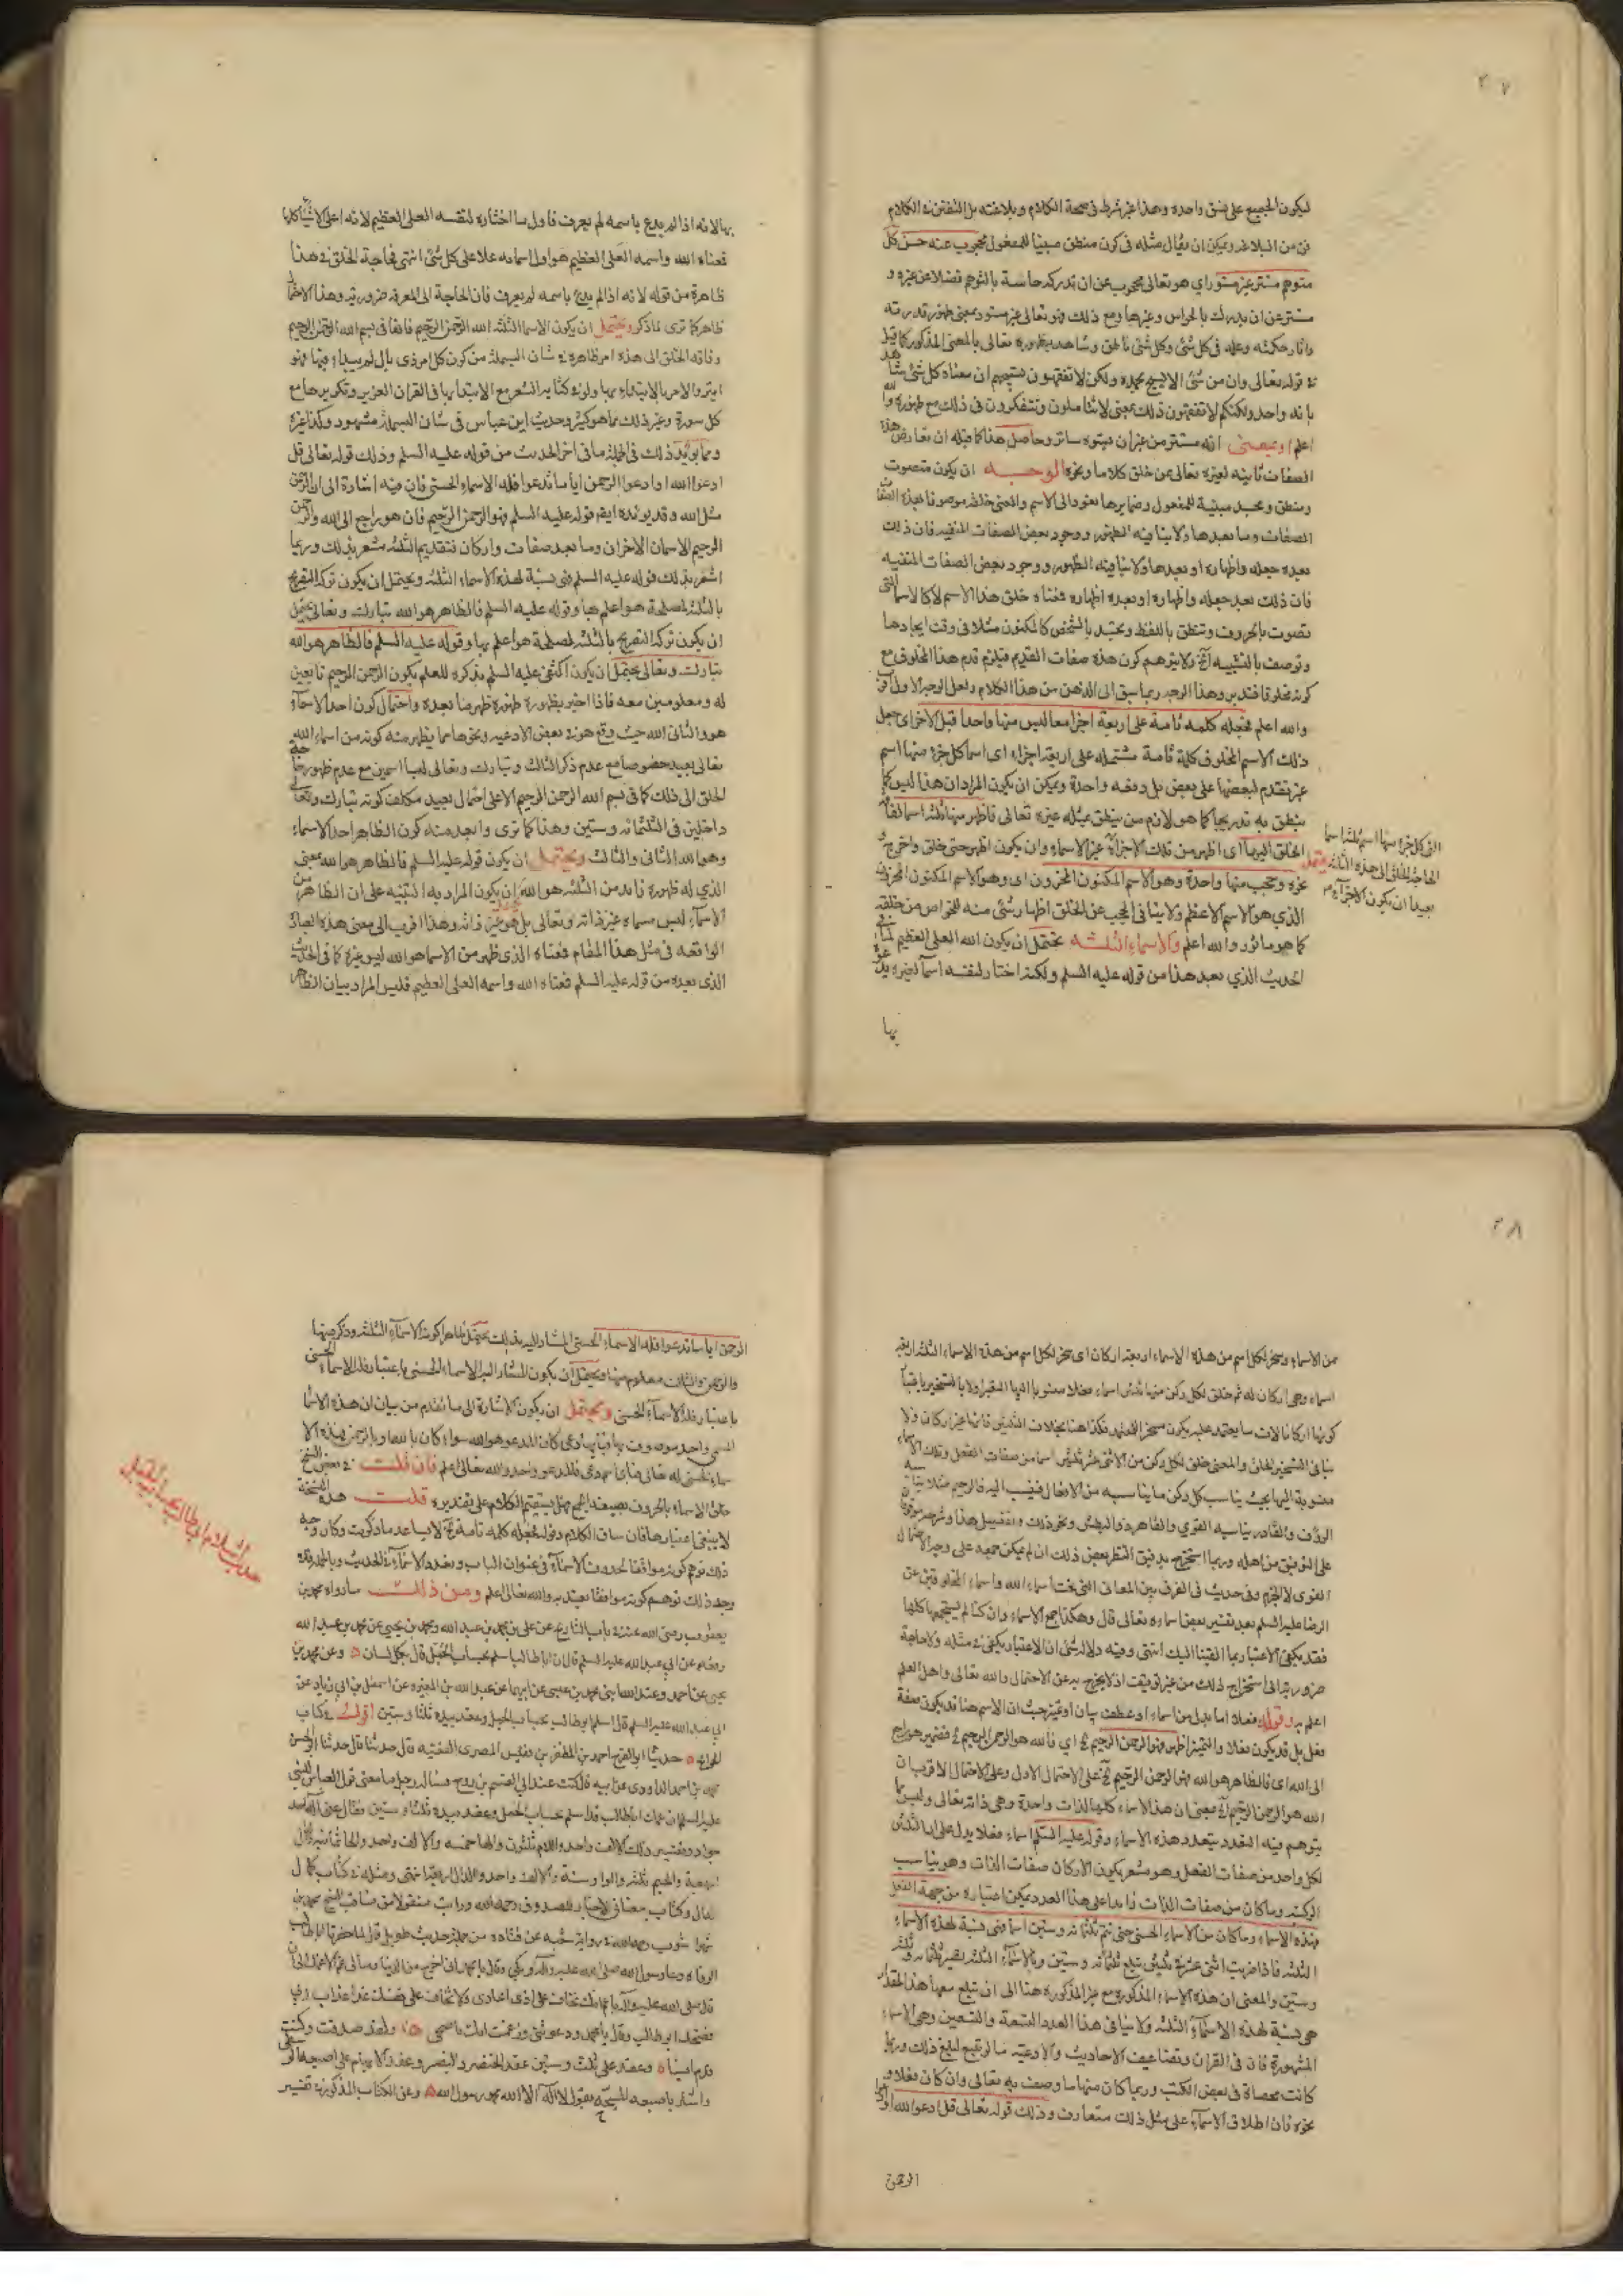 ٢٧
ليكون الجميع على نسق واحد وهذا غير شرط في صحة الكلام وبلاغته بل التفنن في الكلام
فن من البلاغة ويمكن ان يقال مثله في كون منطق مبنيا للمفعول محجوب عنه حس كل
متوهم مستتر غير مستور اي هو تعالى محجوب عن ان تدركه حاسة بالتوهم فضلا عن غيره و
مستتر عن ان يدرك بالحواس وغيرها ومع ذلك فهو تعالى غير مستور بمعنى ظهور قدرته
واثار حكمته وعلمه في كل شئ وكل شئ ناطق وشاهد بظهوره تعالى بالمعنى المذكور كما قيل
في قوله تعالى وان من شئ الا يسبح بحمده ولكن لا تفقهون تسبيحهم ان معناه كل شئ شاهد
بانه واحد ولكنكم لا تفقهون ذلك بمعنى لا تتأملون وتتفكرون في ذلك مع ظهوره والله
اعلم او بمعنى انه مستتر من غير ان يستره ساتر وحاصل هذا كما قبله ان تعارض هذه
الصفات ثابتة لغيره تعالى عن خلق كلاما ونحوه الوجه ان يكون متصوت
ومنطق ومجسد مبنية للمفعول وضمايرها تعود الى الاسم والمعنى خلقه موصوفا بهذه الصفات
الصفات وما بعدها ولا ينافيه الظهور ووجود بعض الصفات المنفيه فان ذلك
بعده جعله واظهاره او بعدها ولا ينافيه الظهور ووجود بعض الصفات المنفيه
فان ذلك بعد جعله واظهاره او بعده اظهاره فمعناه خلق هذا الاسم لا كالاسماء التي
تصوت بالحروف وتنطق باللفظ وتجسد بالشخص كالمكنون مثلا في وقت ايجادها
وتوصف بالتشبيه الخ ولا يتوهم كون هذه صفات القديم فيلزم قدم هذا المخلوق مع
كونه مخلوقا فتدبر وهذا الوجه ربما سبق الى الذهن من هذا الكلام ولعل الوجه الاول اقرب
والله اعلم فجعله كلمة تامة على اربعة اجزا معا ليس منها واحدا قبل الاخر اي جعل
ذلك الاسم المخلوق كلمة تامة مشتملة على اربعة اجزاء اي اسما كل جزء منها اسم
غير تقدم لبعضها على بعض بل دفعة واحدة ويمكن ان يكون المراد ان هذا ليس كما
ينطق به تدريجا كما هو لازم من ينطق بمثله غيره تعالى فاظهر منها ثلثة اسماء لفاقة
الخلق اليها اى اظهر من تلك الاجزاء غير الاسماء وان يكون اظهر حتى خلق واخرج و
نحوه وحجب منها واحدة وهو الاسم المكنون المخزون اى وهو الاسم المكنون المخزون
الذي هو الاسم الاعظم ولا ينافي الحجب عن الخلق اظهار شئ منه للخواص من خلقه
كما هو ماثور والله اعلم والاسماء الثلثه يحتمل ان يكون الله العلي العظيم لما في
الحديث الذي بعد هذا من قوله عليه السلم ولكنه اختار لنفسه اسما لغيره يدعوه
بها
بها لانه اذا لم يدع باسمه لم يعرف فاول ما اختاره لنفسه العلي العظيم لانه اعلى الاشياء كلها
فمعناه الله واسمه العلي العظيم هو اول اسمائه علا على كل شئ انتهى فحاجة الخلق في هذا
ظاهرة من قوله لانه اذا لم يدع باسمه لم يعرف فان الحاجة الى المعرفة ضرورية وهذا الاحتمال
ظاهر كما ترى فاذكر ويحتمل ان يكون الاسماء الثلثة الله الرحمن الرحيم فانها في بسم الله الرحمن الرحيم
وفاقة الخلق الى هذه امر ظاهره في شان البسملة من كون كل امر ذى بال لم يبدء فيها فهو
ابتر والامر بالابتداء بها ولو في كتابة الشعر مع الابتداء بها في القران العزيز وتكريرها مع
كل سورة وغير ذلك مما هو كثير وحديث ابن عباس في شان البسملة مشهور وكذا غيره
ومما يؤيد ذلك في الجملة ما في اخر الحديث من قوله عليه السلم وذلك قوله تعالى قل
ادعوا الله او ادعوا الرحمن ايا ما تدعوا فله الاسماء الحسنى فان فيه اشارة الى ان الرحمن
مثل الله وقد يؤيده ايضا قوله عليه السلم فهو الرحمن الرحيم فان هو راجع الى الله والرحمن
الرحيم الاسمان الاخران وما بعد صفات واركان فتقديم الثلثة مشعر بذلك وربما
اشعر بذلك قوله عليه السلم فهي نسبة لهذه الاسماء الثلثة ويحتمل ان يكون ترك التصريح
بالثلثة لمصلحة هو اعلم بها وقوله عليه السلم فالظاهر هو الله تبارك وتعالى يحتمل
ان يكون ترك التصريح بالثلثة لمصلحة هو اعلم بها وقوله عليه السلم فالظاهر هو الله
تبارك وتعالى يحتمل ان يكون اكتفى عليه السلم بذكره للعلم بكون الرحمن الرحيم تابعين
له ومعلومين معه فاذا اخبر بظهوره ظهوره ظهر ما بعده واحتمال كون احد الاسماء
هو والثاني الله حيث وقع هو في بعض الادعيه ونحوها مما يظهر منه كونه من اسماء الله
تعالى بعيد خصوصا مع عدم ذكر الثالث وتبارك وتعالى ليسا اسمين مع عدم ظهور حاجة
الخلق الى ذلك كما في بسم الله الرحمن الرحيم الا على احتمال بعيد مكلف كونه تبارك وتعالى
داخلين في الثلثمائة وستين وهذا كما ترى وابعد منه كون الظاهر احد الاسماء
وهو الله الثاني والثالث ويحتمل ان يكون قوله عليه السلم فالظاهر هو الله بمعنى
الذي له ظهوره فائد من الثلثة هو الله وان يكون المراد به التنبيه على ان الظاهر من
الاسماء ليس مسماه غير ذاته وتعالى بل هو غير ذاته وهذا اقرب الى معنى هذه العبارة
الواقعه في مثل هذا المقام فمعناه الذي ظهر من الاسما هو الله ليس غيره كما في الحديث
الذي بعده من قوله عليه السلم فمعناه الله واسمه العلي العظيم فليس المراد بيان الظاهر
٢٨
من الاسماء وسخر لكل اسم من هذه الاسماء اربعة اركان اى سخر لكل اسم من هذه الاسماء الثلثة اربعة
اسماء وهى اركان له ثم خلق لكل ركن منها ثلثين اسماء فعلا منسوبا اليها
كونها اركانا لان ما يعتمد عليه يكون مسخرا للمعتمد فكذا هنا بخلاف الثلثين فانها غير اركان ولا
ينافي التسخير الخلق والمعنى خلق لكل ركن من الاثنى عشر ثلثين اسما من صفات الفعل وتلك الاسماء
منسوبة اليها بحيث يناسب كل ركن ما يناسبه من الافعال فينسب اليه فالرحيم مثلا يناسبه
الرؤف والقادر يناسبه القوي والقاهر ونحو ذلك وتفصيل هذا وشرحه موقوف
على التوفيق من اهله وربما استخرج بدقيق النظر بعض ذلك ان لم يمكن جميعه على وجه الاحتمال
القوى لا الجزم وفي حديث في الفرق بين المعاني التي تحت اسماء الله واسماء المخلوقين عن
الرضا عليه السلم بعد تفسير بعض اسمائه تعالى قال وهكذا جميع الاسماء وان كنا لم نستجمعها كلها
فقد يكفى الاعتبار بما القينا اليك انتهى وفيه دلالة على ان الاعتبار يكفى في مثله ولا حاجة
ضرورية الى استخراج لذلك من غير توقيت اذ لا يخرج به عن الاحتمال والله تعالى واهل العلم
اعلم به وقوله فعلا اما بدل من اسماء او عطف بيان او تمييز حيث ان الاسم هنا قد يكون صفة
فعل بل قد يكون فعلا والتمييز اظهر فهو الرحمن الرحيم الخ اى فالله هو الرحمن الرحيم الخ فضمير هو راجع
الى الله اى فالظاهر هو الله فهو الرحمن الرحيم الخ على الاحتمال الاول وعلى الاحتمال الاقرب ان
الله هو الرحمن الرحيم الخ بمعنى ان هذه الاسماء كلها لذات واحدة وهى ذاته تعالى وليس كما
يتوهم فيه التعدد بتعدد هذه الاسماء وقوله عليه السلم اسماء فعلا يدل على ان الثلثين
لكل واحد من صفات الفعل وهو مشعر بكون الاركان صفات الذات وهو يناسب
الركنية وما كان من صفات الذات زائدا على هذا العدد يمكن اعتباره من جهة الفعل
فهذه الاسماء وما كان من الاسماء الحسنى حتى تتم ثلثمائة وستين اسما فهى نسبة لهذه الاسماء
الثلثة فاذا ضربت اثنى عشر في ثلثين تبلغ ثلثمائة وستين وبالاسماء الثلثة تصير ثلثمائة وثلثة
وستين والمعنى ان هذه الاسماء المذكورة مع غير المذكورة هنا الى ان تبلغ معها هذا المقدار
هى نسبة لهذه الاسماء الثلثة ولا ينافي هذا العدد التسعة والتسعين وهى الاسماء
المشهورة فان في القران وتضاعيف الاحاديث والادعية ما لو تتبع لبلغ ذلك وربما
كانت محصاة في بعض الكتب وربما كان منها ما وصف به تعالى وان كان فعلا و
نحوه فان اطلاق الاسماء على مثل ذلك متعارف وذلك قوله تعالى قل ادعوا الله او ادعوا
الرحمن
الرحمن ايا ما تدعوا فله الاسماء الحسنى المشار اليه بذلك يحتمل ظاهرا كونه الاسماء الثلثة وذكر منها
والرحمن والثالث معلوم منها ويحتمل ان يكون المشار اليه الاسماء الحسنى باعتبار فله الاسماء الحسنى
باعتبار فله الاسماء الحسنى ويحتمل ان يكون الاشارة الى ما تقدم من بيان ان هذه الاسما
المسمى واحد موصوف بها فبايها دعى كان المدعو هو الله سواء كان بالله او بالرحمن فهذه الا
سماء الحسنى له تعالى فباى اسم دعى فالمدعو واحد والله تعالى اعلم فان قلت في بعض النسخ
خلق الاسماء بالحروف بصيغة الجمع فهل يستقيم الكلام على تقديره قلت هذه النسخة
لا ينبغى اعتبارها فان سياق الكلام وقوله فجعله كلمة تامة الخ لا يساعد ما ذكرت وكان وجه
ذلك توهم كونه موافقا لحدوث الاسماء في عنوان الباب وتعدد الاسماء في الحديث وبالجملة
وجه ذلك توهم كونه موافقا بعيد به والله تعالى اعلم ومن ذلك ما رواه محمد بن
يعقوب رضى الله عنه في باب التاريخ عن على بن محمد بن عبد الله ومحمد بن يحيى عن محمد بن عبد الله
رفعه عن ابي عبد الله عليه السلم قال ان ابا طالب اسلم بحساب الجمل قال بكل لسان وعن محمد بن
يحيى عن احمد وعبد الله ابنى محمد بن عيسى عن ابيهما عن عبد الله بن المغيرة عن اسمعيل بن ابي زياد عن
ابي عبد الله عليه السلم قال اسلم ابو طالب بحساب الجمل وعقد بيده ثلثا وستين اقول في كتاب
حدثنا ابو الفرج احمد بن المظفر بن نفيس المصري الفقيه قال حدثنا ابو الحسن
محمد بن احمد الداودي عن ابيه قال كنت عند ابي القسم بن روح فسأله رجل ما معنى قول العباس للنبي
عليه السلم ان عمك ابا طالب قد اسلم بحساب الجمل وعقد بيده ثلثا وستين فقال عنى اله احد
جواد وتفسير ذلك ان الالف واحد واللام ثلثون والهاء خمسه والالف واحد والحاء ثمانيه والدال
اربعة والجيم ثلثه والواو ستة والالف واحد والدال اربعة انتهى ومثله في كتاب كمال
وكتاب معاني الاخبار للصدوق رحمه الله ورايت منقولا من مناقب الشيخ محمد بن
شهرا شوب رحمه الله في رواية شعبه عن قتاده من جملة حديث طويل قال لما حضرت ابا طالب
الوفاة دعا رسول الله صلى الله عليه وآله وبكى وقال يا محمد انى اخرج من الدنيا
قال صلى الله عليه وآله يا عم انك تخاف على اذى اعادى ولا تخاف على نفسك غدا عذاب ربي
فضحك ابو طالب وقال يا محمد ودعوتنى وزعمت انك ناصحى ولقد صدقت وكنت
قدم امينا وعقد على ثلث وستين عقد الخنصر والبنصر وعقد الابهام على اصبعه الوسطى
واشار باصبعه المسبحة يقول لا اله الا الله محمد رسول الله وعن الكتاب المذكور في تفسير
حديث اسلام ابي طالب بحساب الجمل